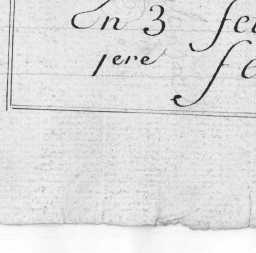 En 3 fe
1ere fe